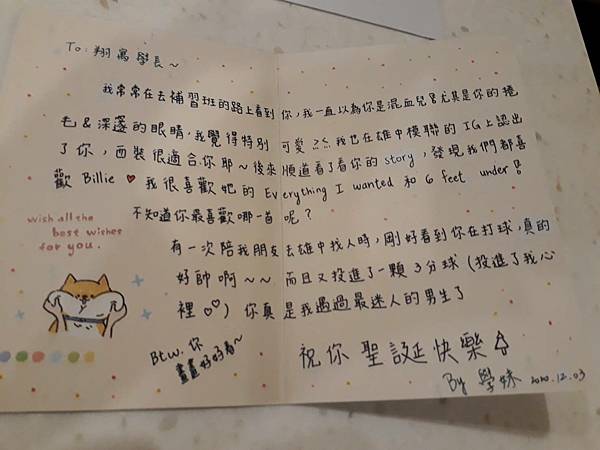 To: 翔寓學長~
我常常在去補習班的路上看到你,我一直以為你是混血兒!尤其是你的捲
毛&深邃的眼睛,我覺得特別可愛 ≥≤ 我也在雄中模聯的IG上認出
了你,西裝很適合你耶~後來順道看了看你的story,發現我們都喜
歡 Billie ♥ 我很喜歡她的 Everything I wanted 和 6 feet under!
不知道你最喜歡哪一首呢?
wish all the
best wishes
for you.
有一次陪我朋友去雄中找人時,剛好看到你在打球,真的
好帥啊~~而且又投進了一顆3分球(投進了我心
裡♡♡)你真是我遇過最迷人的男生了
Btw. 你
畫畫好好看~
祝你 聖誕快樂
By 學妹 2020.12.03